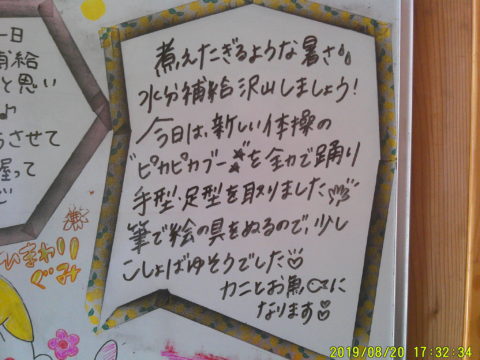 一日
補給
と思い
♪
らさせて
握って
煮えたぎるような暑さ
水分補給沢山しましょう!
今日は、新しい体操の
"ピカピカブー"を全力で踊り
手型・足型を取りました
筆で絵の具をぬるので、少し
こしょばゆそうでした♡
カニとお魚に
なります
ひまわり
ぐみ
2019/08/20 17:32:34